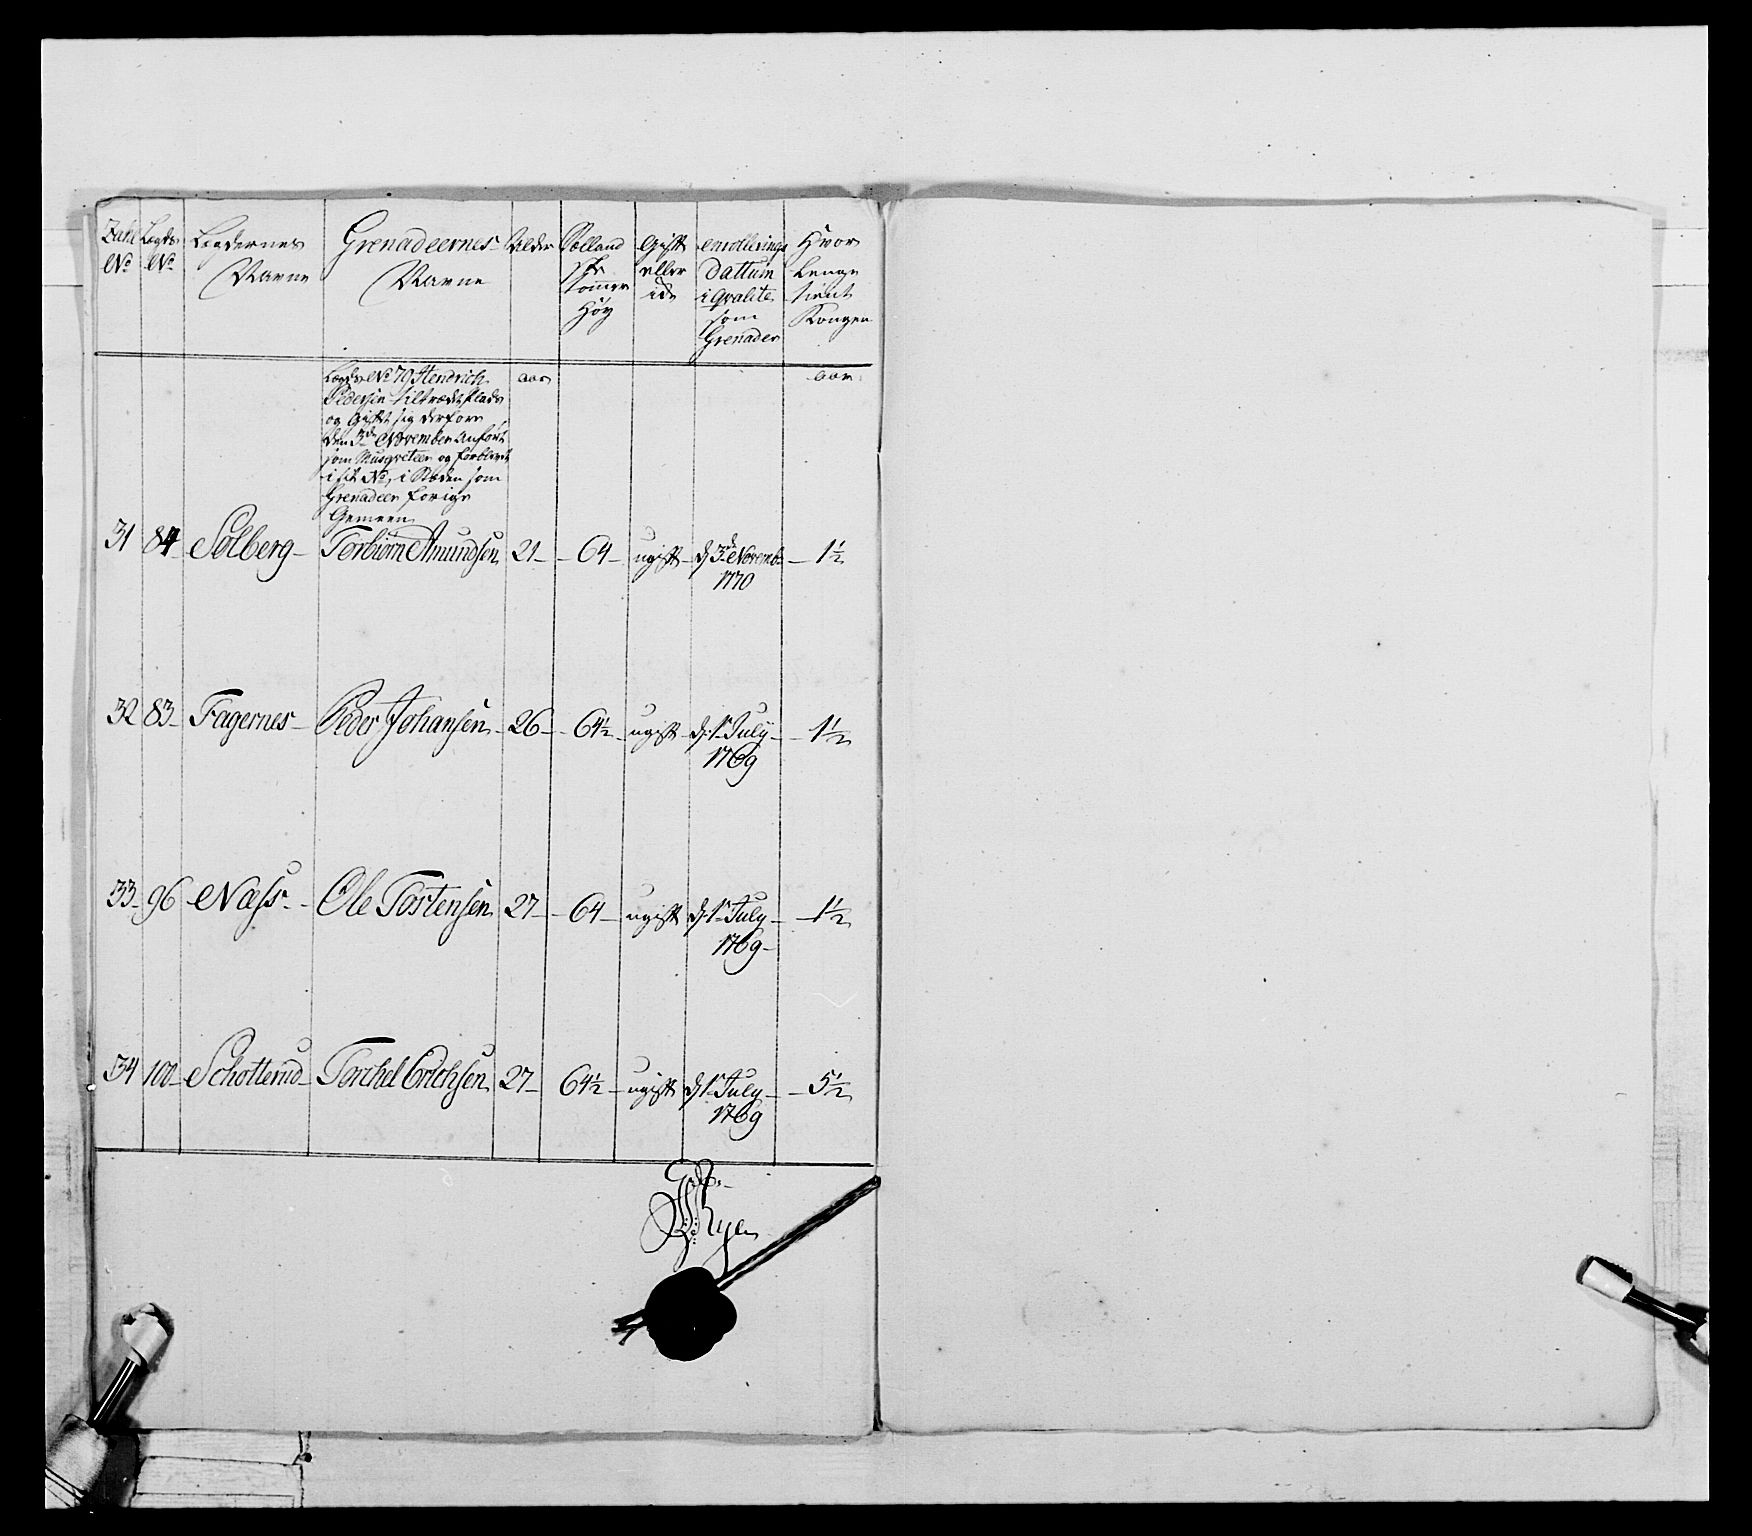 Zahl No Legds No Legdernes Navne Grenadeernes Navne Alder Sælland ske Tommer Høy Gift eller ide enrollerings Dattum i qvalite som Grenader Hvor Lenge tient Kongen
Legds No 79 Hendrich aar aar
Pedersen tiltræde Plads
og Gift sig derfore
den 3de November anført
som Musqveteer og forbleven
i sit No, i Stæden som
Grenadeer forige
Gemeen
31 84 Solberg Torbiørn Amundsen 21 64 ugift d 3de Novemb. 1770 1½
32 83 Fagernes Peder Johansen 26 64½ ugift d: 1te July 1769 1½
33 96 Næss Ole Tostensen 27 64 ugift d: 1te July 1769 1½
34 100 Schotterud Torchel Erichsen 27 64½ ugift d: 1te July 1769 5½
Rye